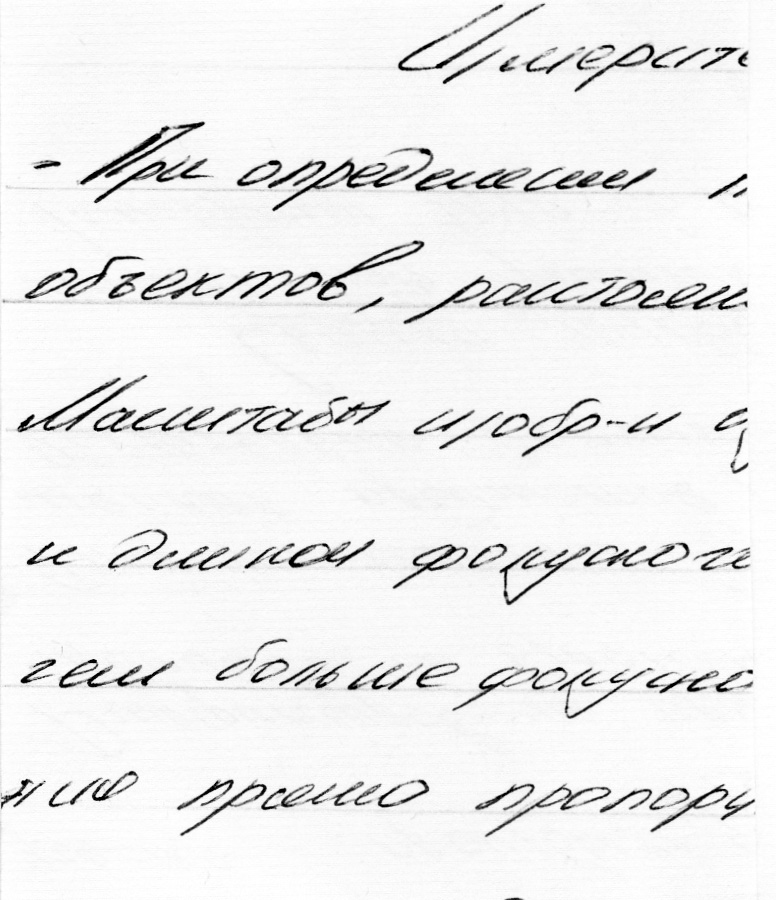 Измерите
- При определении п
объектов, расстоян
Масштабы изобр-и
и длиной фокусного
чем больше фокусно
ние прямо пропорц